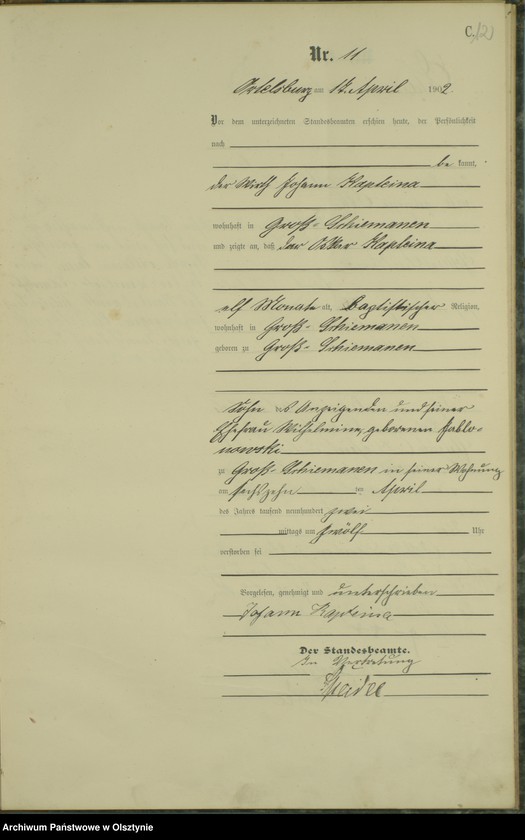 C
Nr. 11
Ortelsburg am April 1902.
Vor dem unterzeichneten Standesbeamten erschien heute, der Persönlichkeit
nach
be kannt,
der Wirth Johann Kapteina
wohnhaft in Groß-Schiemanen
und zeigte an, daß der Oskar Kapteina
elf Monate alt, baptistischer Religion,
wohnhaft in Groß-Schiemanen
geboren zu Groß-Schiemanen
Sohn des Anzeigenden und seiner
Ehefrau Wilhelmine, geborenen Jablo-
nowski
zu Groß-Schiemanen in seiner Wohnung
am sechszehn ten April
des Jahres tausend neunhundert zwei
mittags um zwölf Uhr
verstorben sei
Vorgelesen, genehmigt und unterschrieben
Johann Kapteina
Der Standesbeamte.
In Vertretung
Archiwum Państwowe w Olsztynie